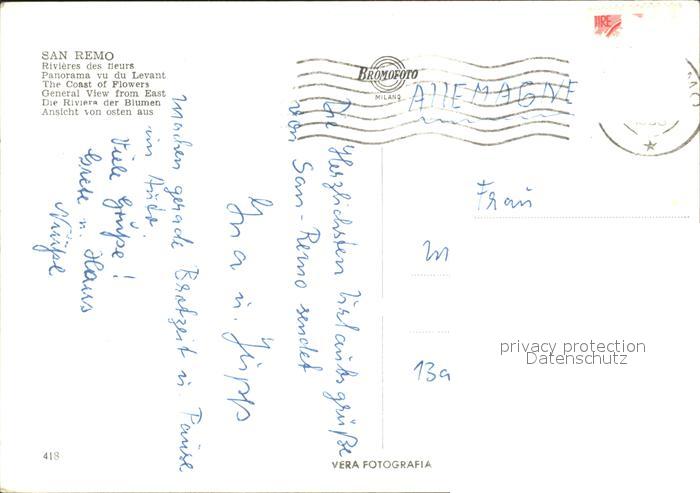 SAN REMO
Rivières des fleurs
Panorama vu du Levant
The Coast of Flowers
General View from East
Die Riviera der Blumen
Ansicht von osten aus
BROMOFOTO
MILANO
LIRE
ALLEMAGNE
Die Herzlichsten Urlaubsgrüße
von San-Remo sendet
Ina u. Jupp
Machen gerade Brotzeit u. Pause
im Auto.
Viele Grüße!
Grete u. Haus
Frau
In
13a
privacy protection
Datenschutz
418
VERA FOTOGRAFIA